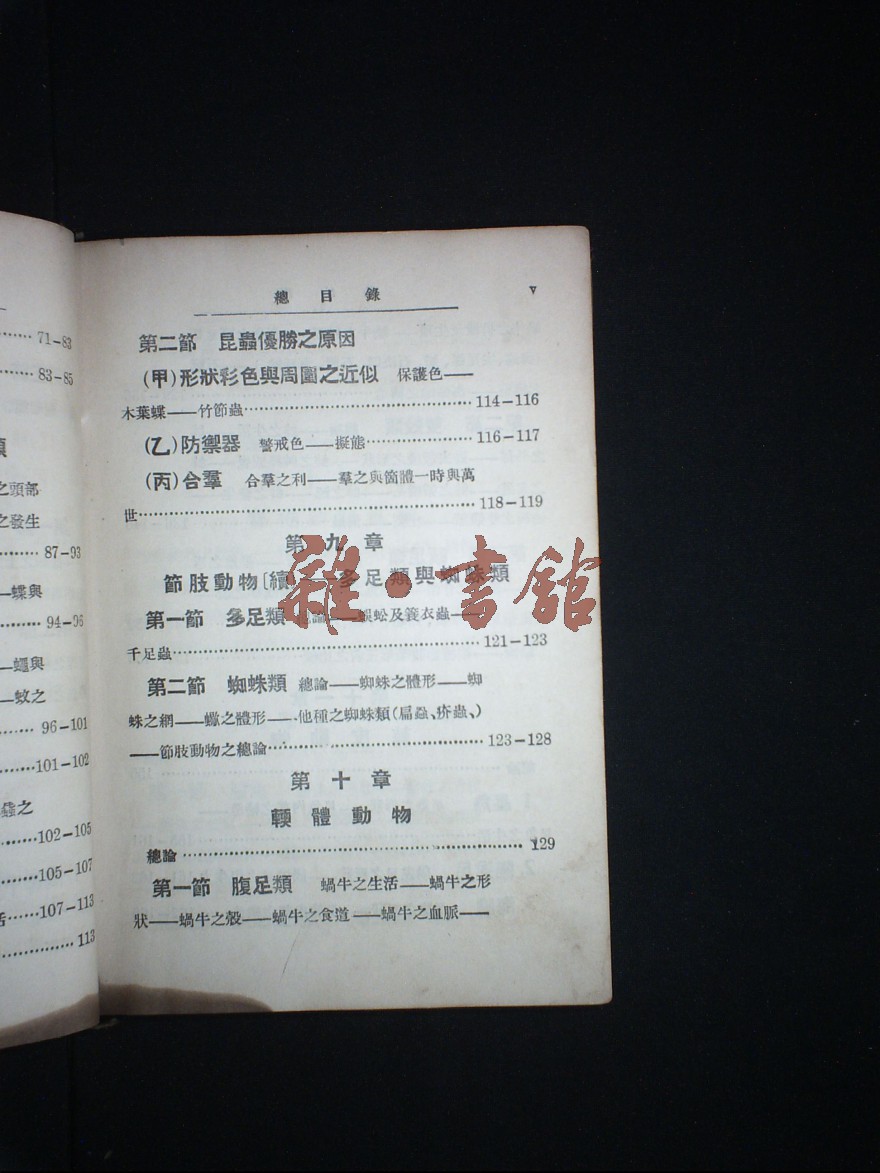 71–83
83–85
之頭部
之發生
87–93
蝶與
94–96
蠅與
蚊之
96–101
101–102
蟲之
102–105
105–107
107–113
113
總目錄 v
第二節 昆蟲優勝之原因
(甲)形狀彩色與周圍之近似 保護色——
木葉蝶——竹節蟲 114–116
(乙)防禦器 警戒色——擬態 116–117
(丙)合羣 合羣之利——羣之與箇體一時與萬
世 118–119
第九章
節肢動物〔續〕——多足類與蜘蛛類
第一節 多足類 總論——蜈蚣及蓑衣蟲——
千足蟲 121–123
第二節 蜘蛛類 總論——蜘蛛之體形——蜘
蛛之網——蠍之體形——他種之蜘蛛類(扁蝨、疥蟲、)
——節肢動物之總論 123–128
第十章
輭體動物
總論 129
第一節 腹足類 蝸牛之生活——蝸牛之形
狀——蝸牛之殼——蝸牛之食道——蝸牛之血脈——
雜·書館